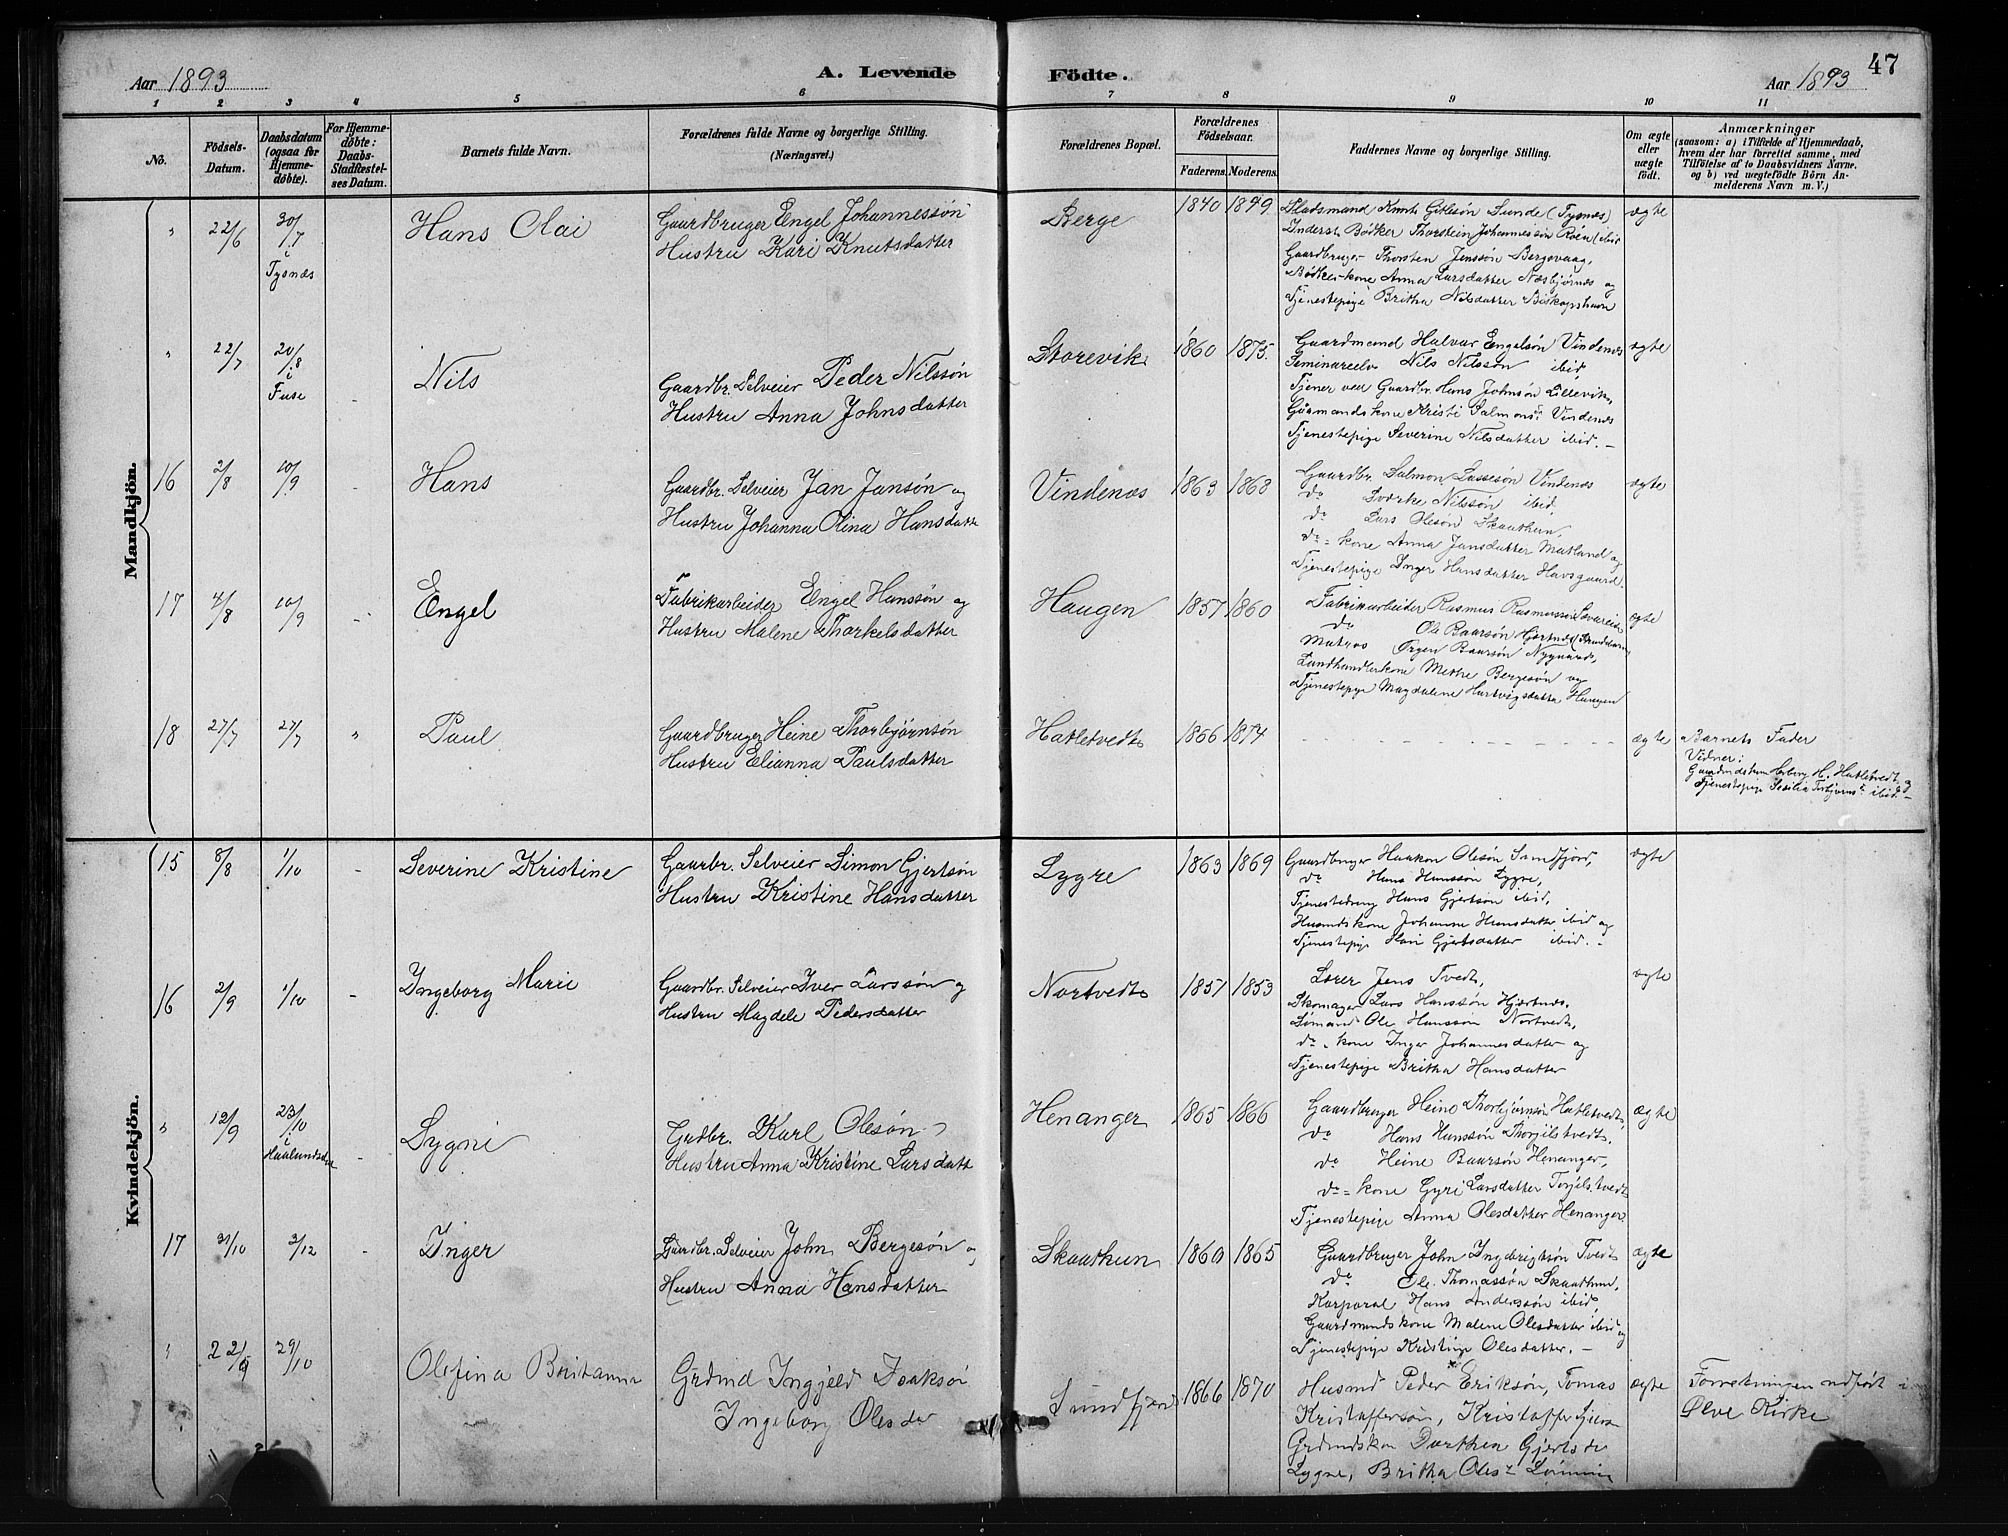 Aar 1893
A. Levende
Födte.
Aar 1893
47
1 2 3 4 5 6 7 8 9 10 11
No.
Födsels-
Datum.
Daabsdatum
(ogsaa for
Hjemme-
döbte).
For Hjemme-
döbte:
Daabs-
Stadfæstel-
ses Datum.
Barnets fulde Navn.
Forældrenes fulde Navne og borgerlige Stilling.
(Næringsvei.)
Forældrenes Bopæl.
Forældrenes
Födselsaar.
Faderens. Moderens.
Faddernes Navne og borgerlige Stilling.
Om ægte
eller
uægte
födt.
Anmærkninger
(saasom: a) i Tilfælde af Hjemmedaab,
hvem der har forrettet samme, med
Tilföielse af to Daabsvidners Navne.
og b) ved uægtefödte Börn An-
melderens Navn m. V.)
Mandkjön.
" 22/6 30/7 i Tysnæs
Hans Olai
Gaardbruger Engel Johannessön
Hustru Kari Knutsdatter
Berge
1840 1849
Pladsmand Knut Gitlesön Sunde (Tysnæs)
Inderst Bödker Thorstein Johannessön Röen ibid
Gaardbruger Thorsten Jenssön Bergevaag,
Bödkerkone Anna Larsdatter Næsbjörnes og
Tjenestepige Britha Nilsdatter Biskopshavn
ægte
" 22/7 20/8 i Fuse -
Nils
Gaardbr. Selveier Peder Nilssön
Hustru Anna Johnsdatter
Storevik
1860 1875
Gaardmand Halvar Engelsön Vindenes
Seminarelev Nils Nilssön ibid
Tjener ved Gaardbr. Hans Johnsön Lillevik,
Gårmandskone Kristi Salmonsd. Vindenes
Tjenestepige Severine Nilsdatter ibid. -
ægte
16 2/8 10/9 -
Hans
Gaardbr. Selveier Jan Jansön og
Hustru Johanna Olina Hansdatte
Vindenæs
1863 1868
Gaardbr. Salmon Lassesön Vindenæs
do Sværke Nilssön ibid,
do Lars Olesön Skaathun,
do - kone Anna Jansdatter Matland og
Tjenestepige Inger Hansdatter Havsgaard
ægte
17 4/8 10/9 -
Engel
Fabrikarbeider Engel Hanssön og
Hustru Malene Thorkelsdatter
Haugen
1857 1860
Fabrikarbeider Rasmus Rasmussön Sævareid
do Ole Baarsön Hjertnes
Matros Örgen Baarsön Nygaard,
Landhandlerkone Methe Bergesön og
Tjenestepige Magdalene Hartvigsdatter Haugen
ægte
18 27/7 27/7 "
Paul
Gaardbruger Heine Thorbjörnsön
Hustru Elianna Paulsdatter
Hatletvedt
1866 1874
ægte
Barnets Fader
Vidner:
H. Hatletvedt og
Tjenestepige ibid. -
Kvindekjön.
15 8/8 1/10 -
Severine Kristine
Gaarbr. Selveier Simon Gjertsön
Hustru Kristine Hansdatter
Lygre
1863 1869
Gaardbruger Haakon Olesön Sundfjord,
do Hans Hanssön Lygre,
Tjenestedreng Hans Gjertsön ibid,
Husmdskone Johanne Hansdatter ibid og
Tjenestepige Kari Gjertsdatter ibid. -
ægte
16 2/9 1/10 -
Ingeborg Marie
Gaardbr. Selveier Iver Larssön og
Hustru Magdele Pedersdatter
Nortvedt
1857 1853
Lærer Jens Tvedt,
Skomager Lars Hanssön Hjertnæs.
Sömand Ole Hanssön Nortvedt,
do - kone Inger Johannesdatter og
Tjenestepige Britha Hansdatter
ægte
" 12/9 23/10 i Haalandsdal -
Sygni
Grdbr. Karl Olesön
Hustru Anna Kristine Larsdatt
Henanger
1865 1866
Gaardbruger Heine Thorbjörnsön Hatletvedt,
do Hans Hanssön Thorjilstvedt.
do Heine Baarsön Henanger,
do - kone Gyri Larsdatter Torjilstvedt
Tjenestepige Anna Olesdatter Henanger
ægte
17 31/10 3/12 -
Inger
Gaardbr. Selveier John Bergesön og
Hustru Anna Hansdatter
Skaathun
1860 1865
Gaardbruger John Ingbrigtsön Tvedt
do Ole Thomassön Skaathun,
Korporal Hans Anderssön ibid,
Gaardmandskone Malene Olesdatter ibid og
Tjenestepige Kristine Olesdatter. -
ægte
" 22/9 29/10
Olefina Britanna
Grdmd Ingjeld Isaksön
Ingeborg Olesdr
Sundfjord
1866 1870
Husmd Peder Eriksön, Tomas
Kristaffersön, Kristaffer
Grdmdskon Dorthea Gjertsdr
Lygre, Britha Olesdr
ægte
Forretningen udfört i
Ølve Kirke